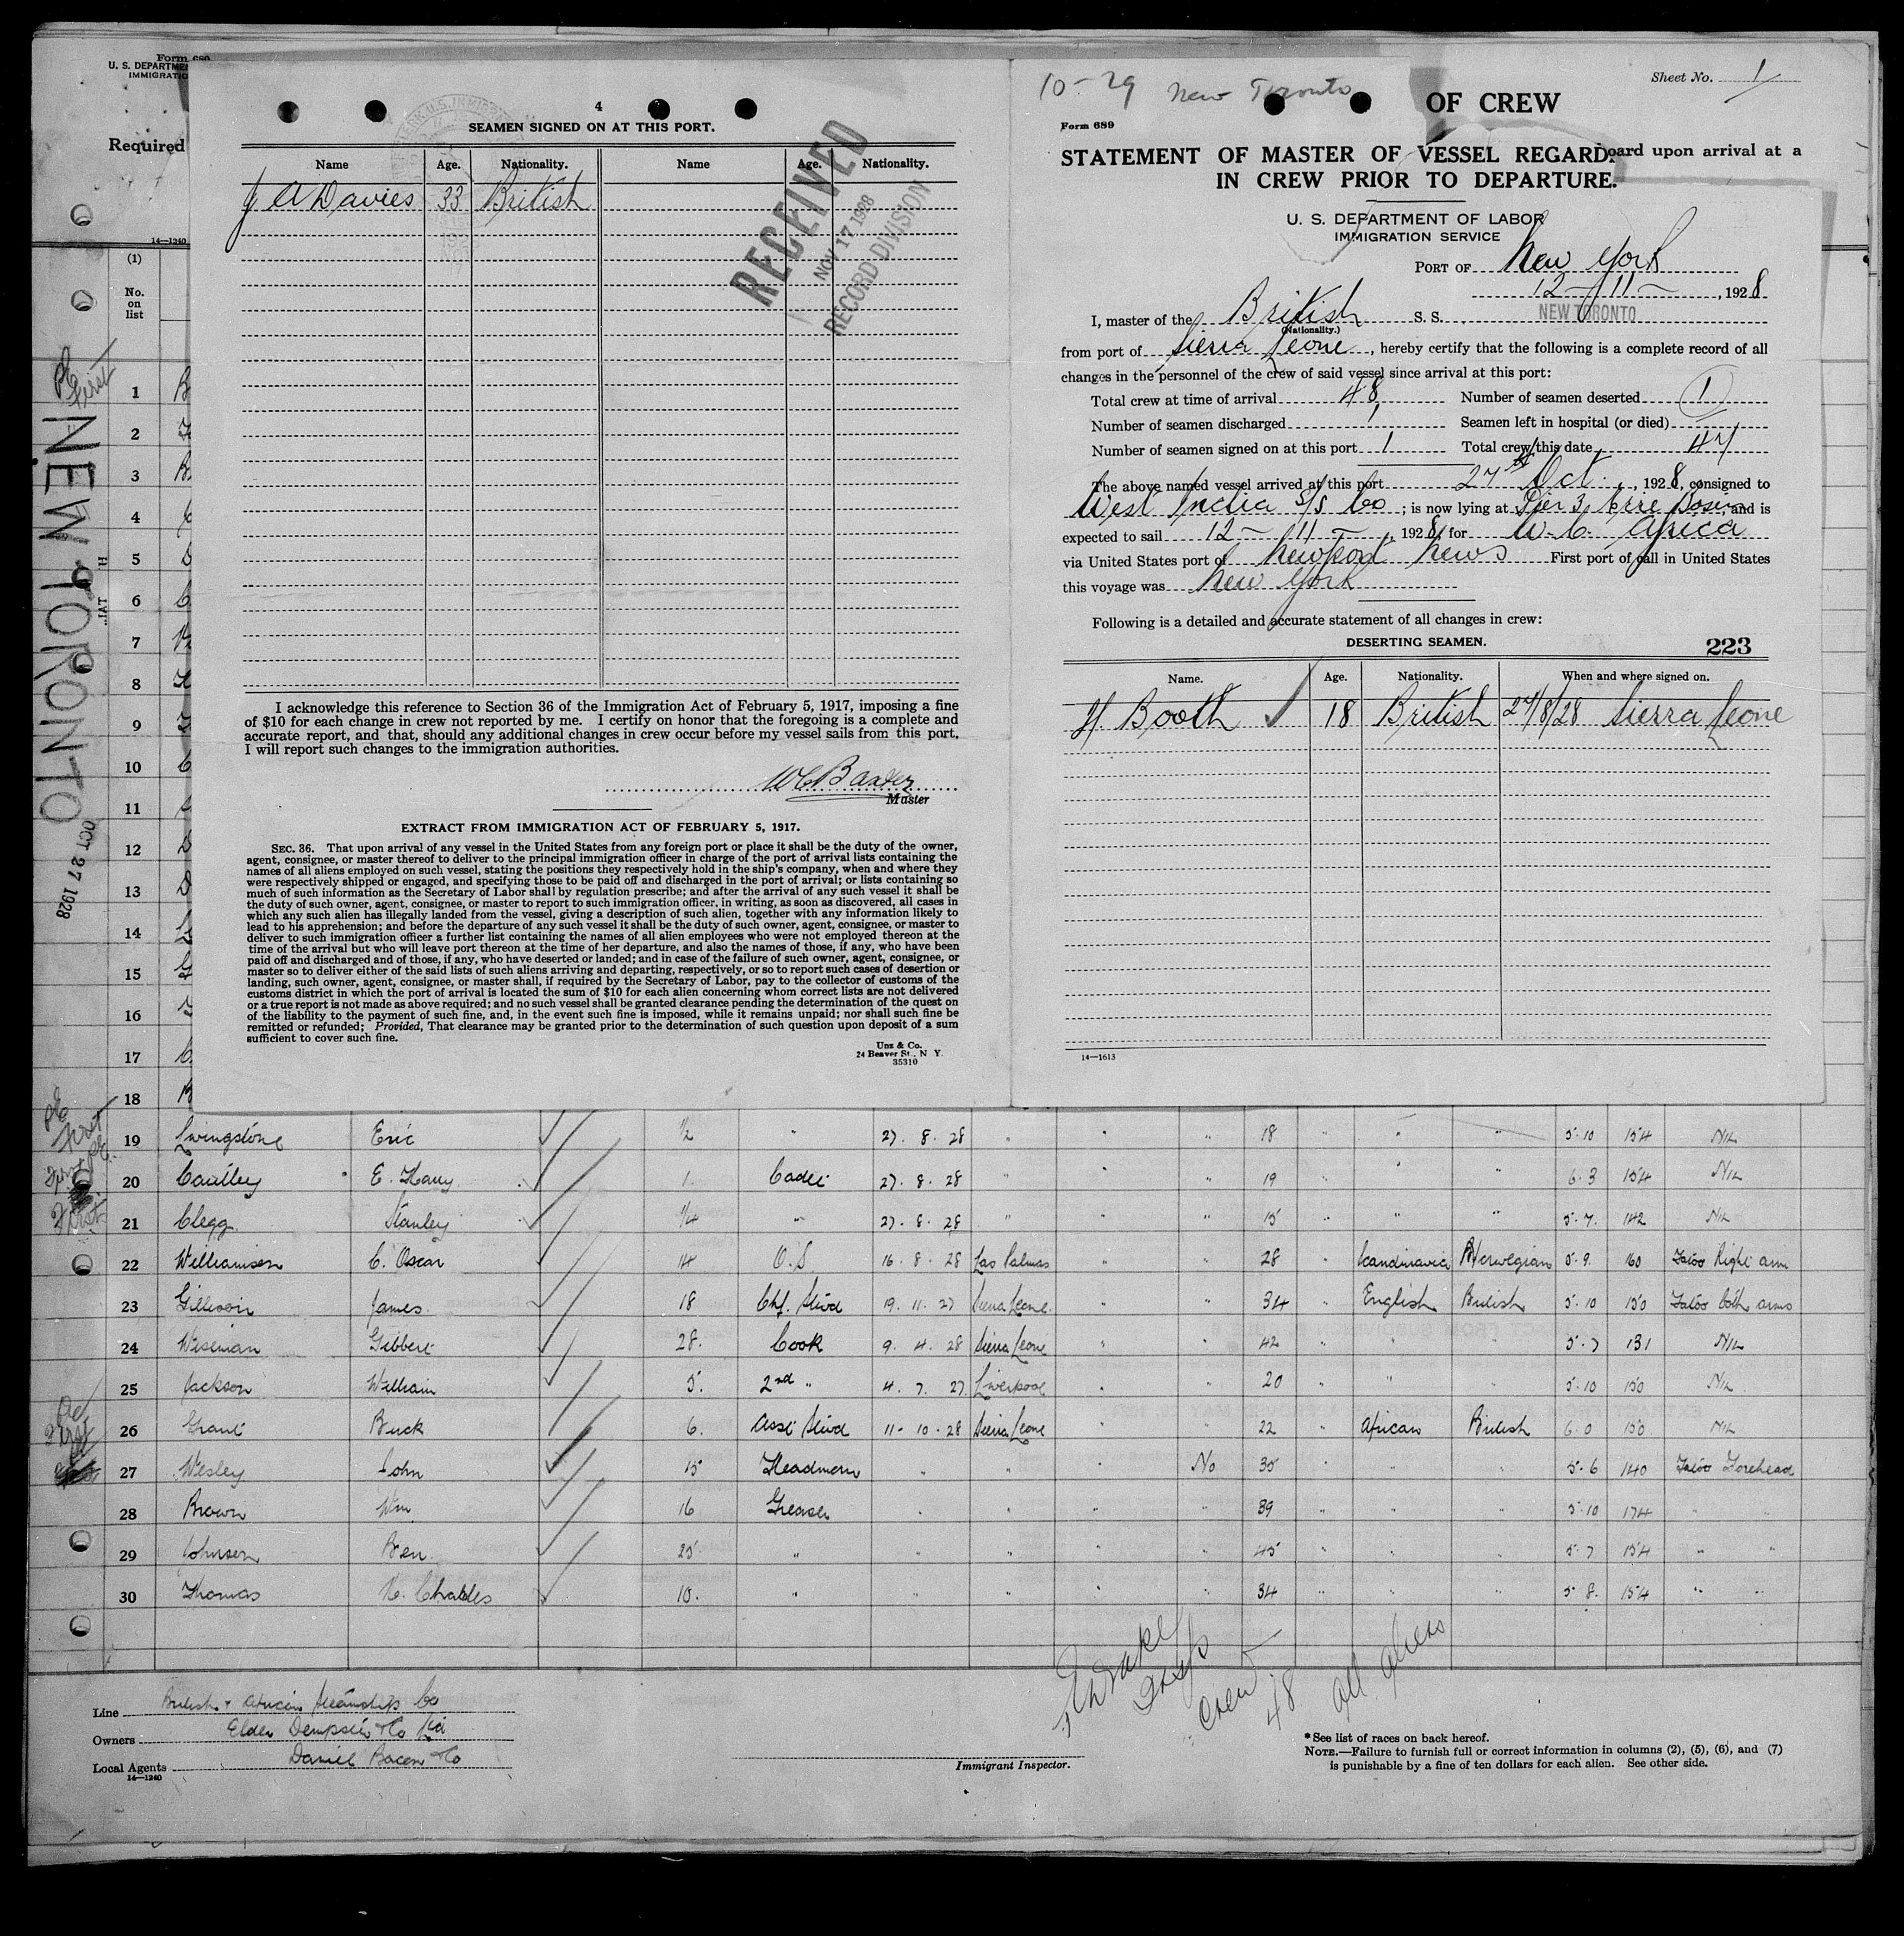 Form 689
U. S. DEPARTME
IMMIGRATIO
Required
14—1240
(1)
No.
on
list
NEW TORONTO
OCT 27 1928
1 B
2
3 B
4
5
6
7
8
9
10
11
12
13
14
15
16
17
18
4
SEAMEN SIGNED ON AT THIS PORT.
Name Age. Nationality. Name Age. Nationality.
J A Davies 33 British
RECEIVED
NOV 17 1928
RECORD DIVISION
I acknowledge this reference to Section 36 of the Immigration Act of February 5, 1917, imposing a fine
of $10 for each change in crew not reported by me. I certify on honor that the foregoing is a complete and
accurate report, and that, should any additional changes in crew occur before my vessel sails from this port,
I will report such changes to the immigration authorities.
W C Baxter
Master
EXTRACT FROM IMMIGRATION ACT OF FEBRUARY 5, 1917.
SEC. 36. That upon arrival of any vessel in the United States from any foreign port or place it shall be the duty of the owner,
agent, consignee, or master thereof to deliver to the principal immigration officer in charge of the port of arrival lists containing the
names of all aliens employed on such vessel, stating the positions they respectively hold in the ship's company, when and where they
were respectively shipped or engaged, and specifying those to be paid off and discharged in the port of arrival; or lists containing so
much of such information as the Secretary of Labor shall by regulation prescribe; and after the arrival of any such vessel it shall be
the duty of such owner, agent, consignee, or master to report to such immigration officer, in writing, as soon as discovered, all cases in
which any such alien has illegally landed from the vessel, giving a description of such alien, together with any information likely to
lead to his apprehension; and before the departure of any such vessel it shall be the duty of such owner, agent, consignee, or master to
deliver to such immigration officer a further list containing the names of all alien employees who were not employed thereon at the
time of the arrival but who will leave port thereon at the time of her departure, and also the names of those, if any, who have been
paid off and discharged and of those, if any, who have deserted or landed; and in case of the failure of such owner, agent, consignee, or
master so to deliver either of the said lists of such aliens arriving and departing, respectively, or so to report such cases of desertion or
landing, such owner, agent, consignee, or master shall, if required by the Secretary of Labor, pay to the collector of customs of the
customs district in which the port of arrival is located the sum of $10 for each alien concerning whom correct lists are not delivered
or a true report is not made as above required; and no such vessel shall be granted clearance pending the determination of the quest on
of the liability to the payment of such fine, and, in the event such fine is imposed, while it remains unpaid; nor shall such fine be
remitted or refunded; Provided, That clearance may be granted prior to the determination of such question upon deposit of a sum
sufficient to cover such fine.
Unz & Co.
24 Beaver St., N Y.
35310
10-29 New Toronto
Sheet No. 1
OF CREW
Form 689
STATEMENT OF MASTER OF VESSEL REGARD
oard upon arrival at a
IN CREW PRIOR TO DEPARTURE.
U. S. DEPARTMENT OF LABOR
IMMIGRATION SERVICE
PORT OF New York
12 - 11 - , 1928
I, master of the British S. S. NEW TORONTO
(Nationality.)
from port of Sierra Leone, hereby certify that the following is a complete record of all
changes in the personnel of the crew of said vessel since arrival at this port:
Total crew at time of arrival 48 Number of seamen deserted 1
Number of seamen discharged 1 Seamen left in hospital (or died)
Number of seamen signed on at this port 1 Total crew this date 47
The above named vessel arrived at this port 27th Oct., 1928, consigned to
West India S/S Co; is now lying at Pier 3 Erie Basin, and is
expected to sail 12 - 11 -, 1928, for W. C. Africa
via United States port of Newport News First port of call in United States
this voyage was New York
Following is a detailed and accurate statement of all changes in crew:
DESERTING SEAMEN.
223
Name. Age. Nationality. When and where signed on.
H. Booth 18 British 27/8/28 Sierra Leone
14—1613
19 Livingstone Eric 1/2 " 27. 8. 28 " " " 18 " " " 5.10 154 Nil
20 Caulley E. Harry 1. Cadet 27. 8. 28 " " " 19 " " " 6.3 154 Nil
21 Clegg Stanley 1/4 " 27. 8. 28 " " " 15 " " " 5.7. 142 Nil
22 Williamsen C. Oscar 14 O.S. 16. 8. 28 Las Palmas " " 28 " Scandinavia Norwegian 5.9. 160 Tatoo Right arm
23 James 18 Chf. Stwd 19. 11. 27 Sierra Leone " " 34 " English British 5.10 150 Tatoo both arms
24 Wiseman Gilbert 28. Cook 9. 4. 28 Sierra Leone " " 42 " " " 5.7 131 Nil
25 Jackson William 5. 2nd " 4. 7. 27 Liverpool " " 20 " " " 5.10 150 Nil
26 Grant Buck 6. Asst Stwd 11-10-28 Sierra Leone " " 22 " African British 6.0 150 Nil
27 Wesley John 15 Headman " " " No 35 " " " 5.6 140 Tatoo Forehead
28 Brown Wm 16 Greaser " " " " 39 " " " 5.10 174 " "
29 Johnson Ben 25 " " " " " 45 " " " 5.7 154 " "
30 Thomas K. Charles 10. " " " " " 34 " " " 5.8. 154 " "
Crew 48 all aliens
Line British & African Steamship Co
Owners Elder Dempster & Co Ltd
Local Agents Daniel Bacon & Co
14—1240
Immigrant Inspector.
* See list of races on back hereof.
NOTE.—Failure to furnish full or correct information in columns (2), (5), (6), and (7)
is punishable by a fine of ten dollars for each alien. See other side.